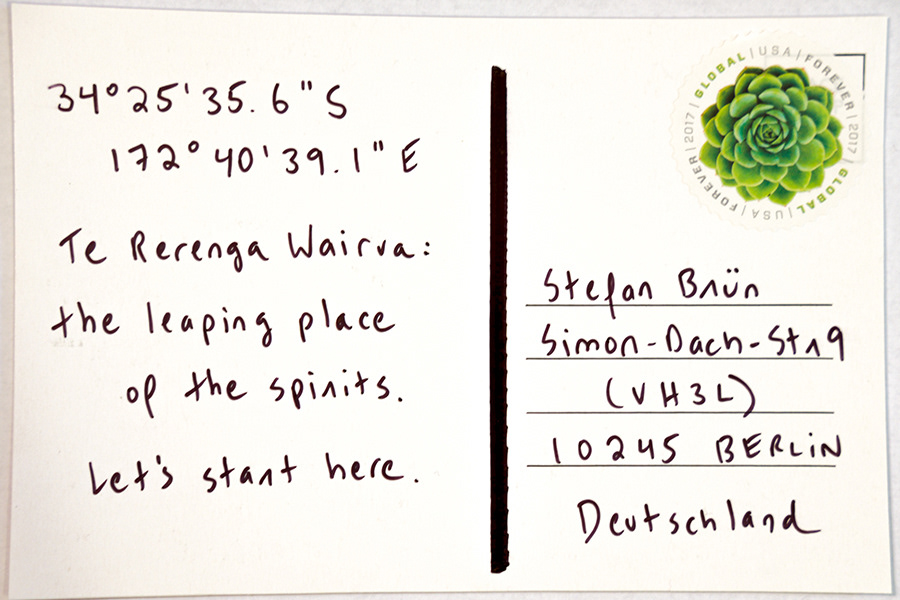 34°25'35.6"S
172°40'39.1"E
Te Rerenga Wairua:
the leaping place
of the spirits.
Let's start here.
GLOBAL | USA | FOREVER | 2017 | GLOBAL | USA | FOREVER | 2017 |
Stefan Brün
Simon-Dach-Str 9
(VH3L)
10245 BERLIN
Deutschland